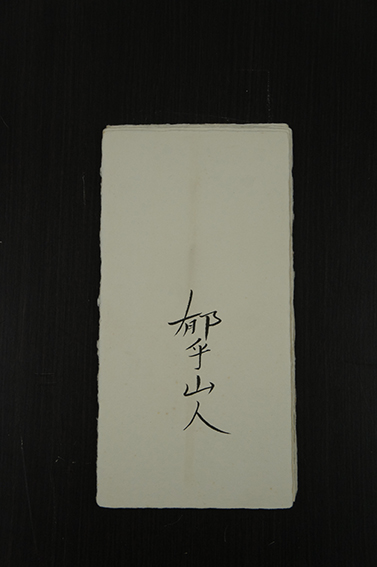 郁乎山人